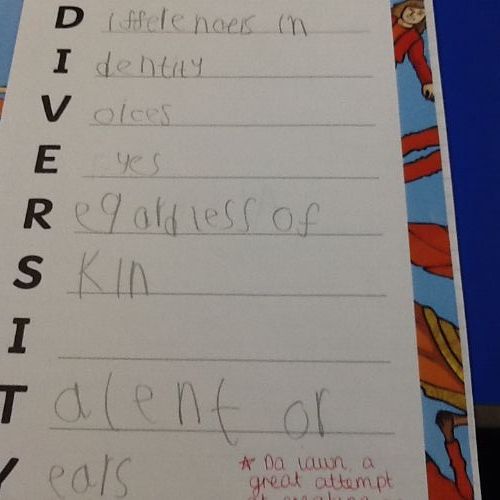 D ifferences in
I dentity
V oices
E yes
R egardless of
S kin
I
T alent or
Y ears
* Da iawn, a
great attempt